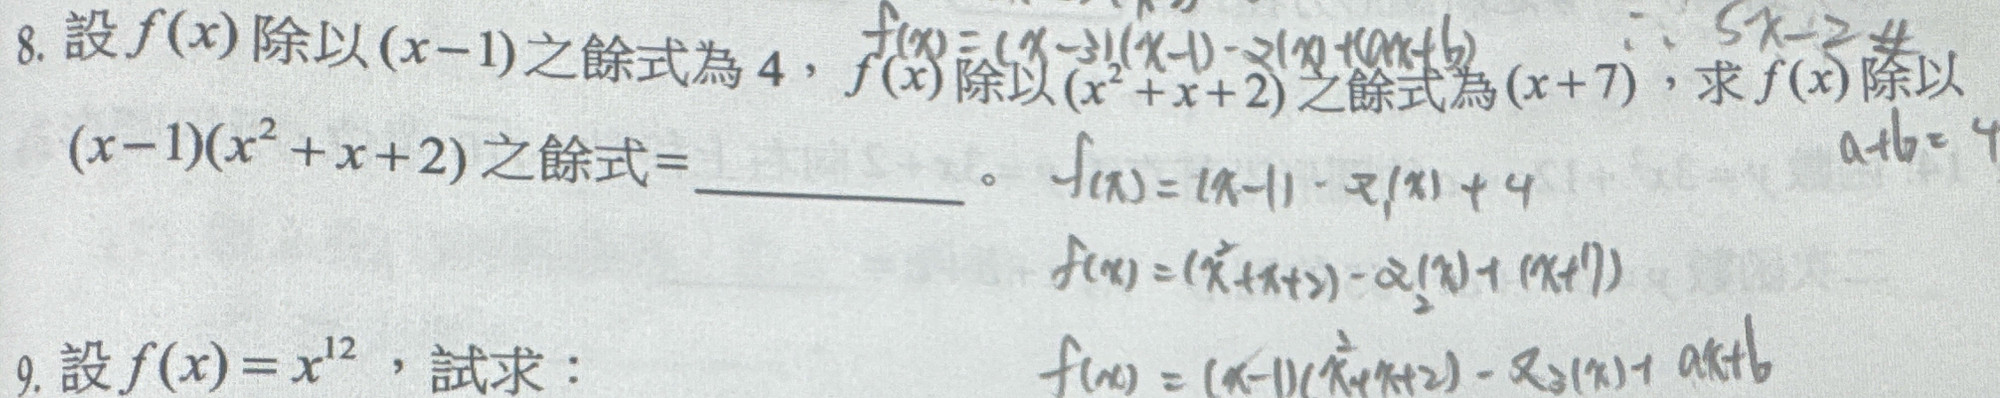 f(x)=(x-3)(x-1)-2(x)+(ax+b)
∴ 5x-2 #
8. 設 f(x) 除以 (x-1) 之餘式為 4，f(x) 除以 (x²+x+2) 之餘式為 (x+7)，求 f(x) 除以
(x-1)(x²+x+2) 之餘式=________。
a+b=4
f(x)=(x-1)-2₁(x)+4
f(x)=(x²+x+2)-2₂(x)+(x+7)
9. 設 f(x)=x¹²，試求：
f(x)=(x-1)(x²+x+2)-2₃(x)+ax+b